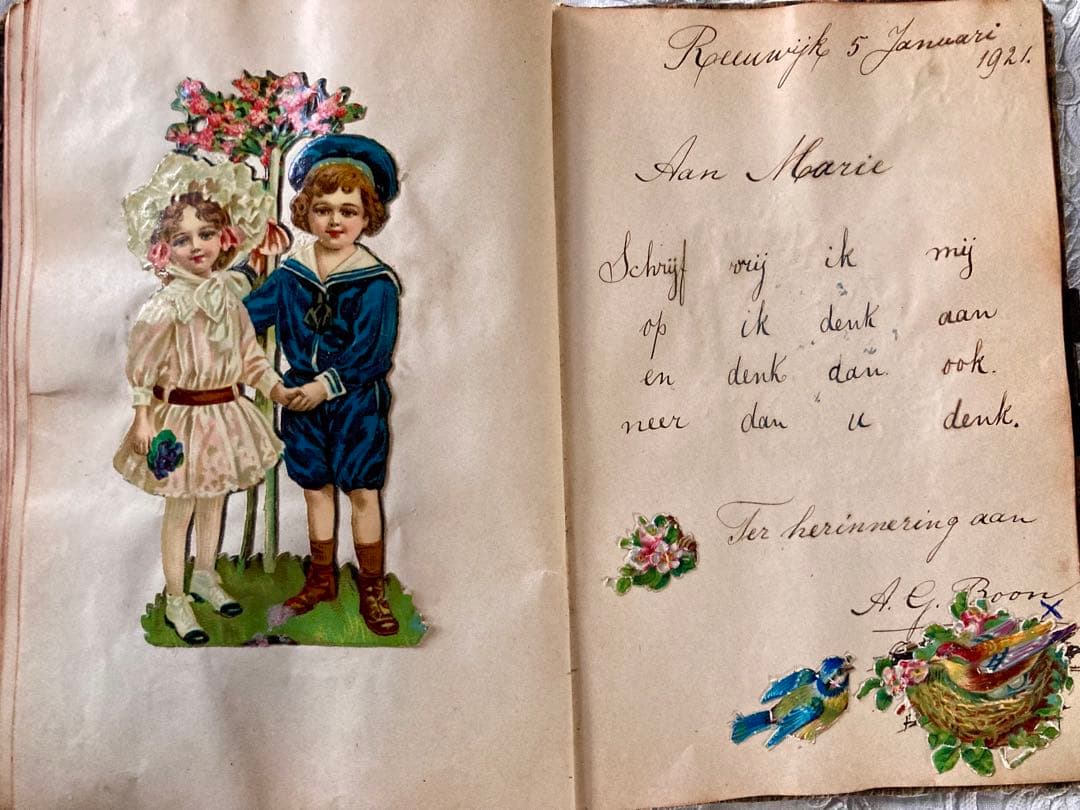 Reeuwijk 5 Januari
1921.
Aan Marie
Schrijf vrij ik mij
op ik denk aan
en denk dan ook.
neer dan u denk.
Ter herinnering aan
A. G. Boon